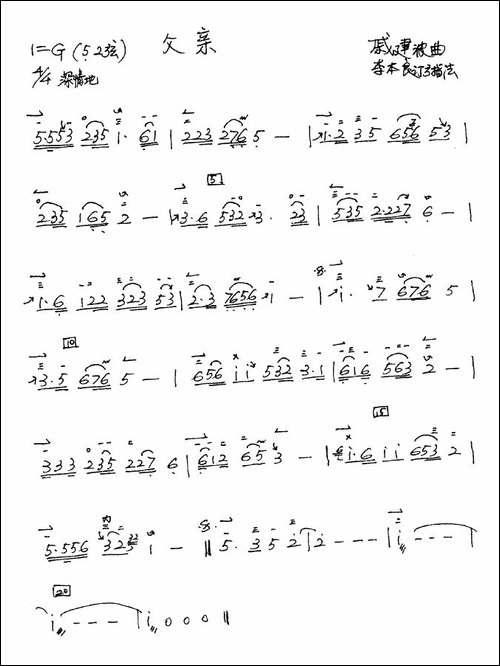 1=G (5 2弦) 父亲 戚建波曲
4/4 深情地 李本良订弓指法
5·553 235 1· 61 | 223 276 5 — | 1·2 35 656 53 |
5
235 165 2 — | 3·6 532 3· 23 | 535 2·227 6 — |
1·6 122 323 53 | 2·3 7656 1 — | i· 7 676 5 |
10
3·5 676 5 — | 656 ii 532 3·1 | 616 563 2 — |
15
333 235 227 6 | 612 65 3 — | i·6 ii 653 2 |
5·556 325 1 — || 5· 35 2 | 2 — — — | i — — — |
20
i — — — | i 0 0 0 ||